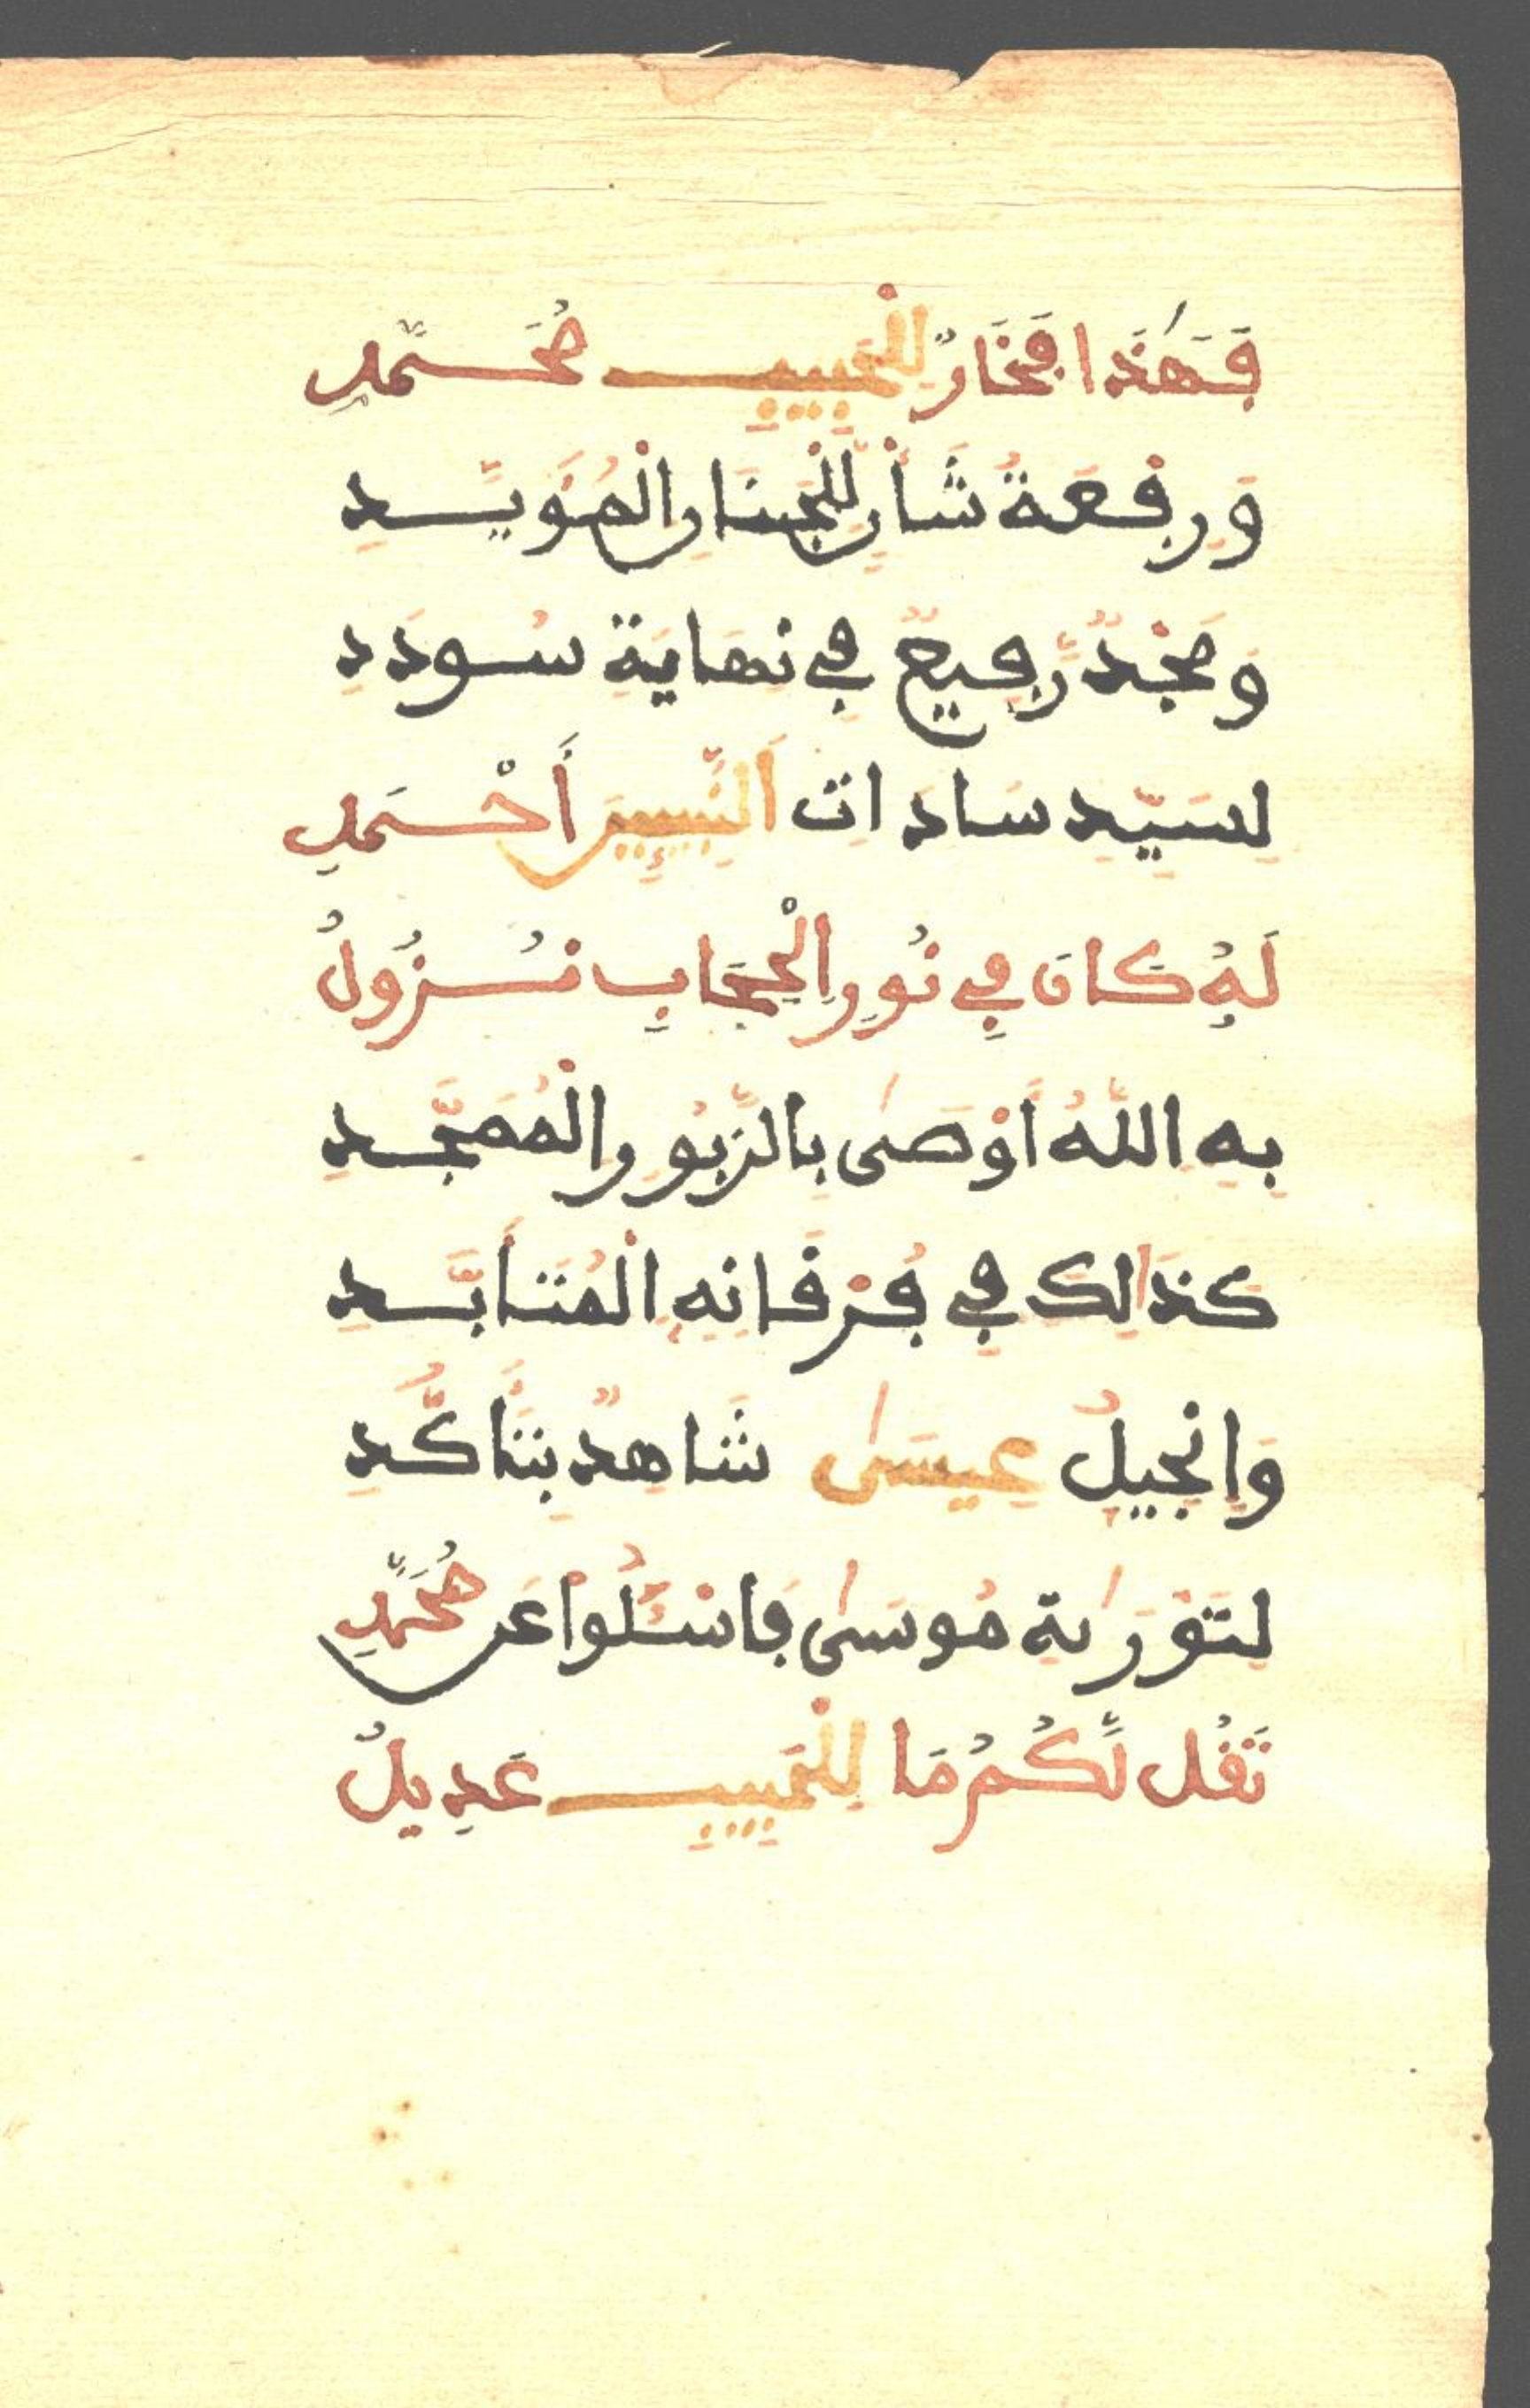 فَهَٰذَا فَخَارٌ لِلْحَبِيبِ مُحَمَّدِ
وَرِفْعَةُ شَأْنٍ لِلْجَنَانِ الْمُؤَيَّدِ
وَمَجْدٌ رَّفِيعٌ فِي نِهَايَةِ سُودَدِ
لِسَيِّدِ سَادَاتِ اَلنَّبِيئِينَ أَحْمَدِ
لَهُ كَانَ فِي نُورِ الْحِجَابِ نُزُولُ
بِهِ اِللَّهُ أَوْصَىٰ بِالزَّبُورِ الْمُمَجَّدِ
كَذَالِكَ فِي فُرْقَانِهِ اِلْمُتَأَبَّدِ
وَإِنْجِيلُ عِيسَىٰ شَاهِدٌ بِتَأَكُّدِ
لِتَوْرَىٰةِ مُوسَىٰ فَاسْئَلُوا عَن مُحَمَّدِ
تَقُل لَّكُمُ مَا لِلْحَبِيبِ عَدِيلُ